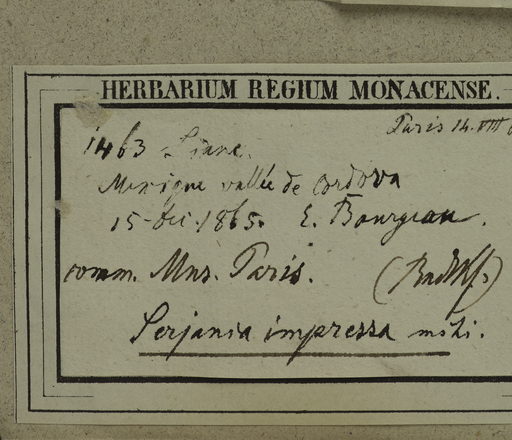 HERBARIUM REGIUM MONACENSE.
Paris 14. VIII
1463 Liane.
Mexique vallée de Cordova
15 Dec. 1865. E. Bourgeau.
comm. Mus. Paris. (Radlkf.)
Serjania impressa mihi.